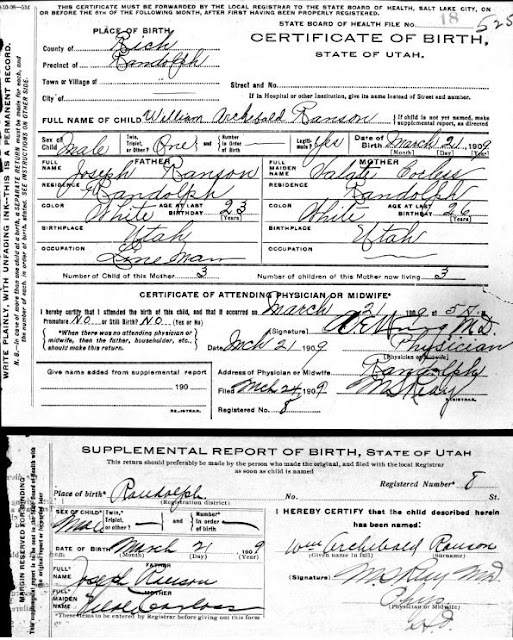 THIS CERTIFICATE MUST BE FORWARDED BY THE LOCAL REGISTRAR TO THE STATE BOARD OF HEALTH, SALT LAKE CITY, ON
OR BEFORE THE 5TH OF THE FOLLOWING MONTH, AFTER FIRST HAVING BEEN PROPERLY REGISTERED.
STATE BOARD OF HEALTH FILE NO. 18 525
PLACE OF BIRTH
CERTIFICATE OF BIRTH,
STATE OF UTAH.
County of Rich
Precinct of Randolph
Town or Village of
Street and No.
City of
If in Hospital or other institution, give its name instead of Street and number.
FULL NAME OF CHILD William Archibald Ranson
If child is not yet named, make supplemental report, as directed
Sex of Child Male Twin, Triplet, or Other? One and Number in Order of Birth Legitimate? Yes Date of Birth March 21, 1909
(Month) (Day) (Year)
FATHER MOTHER
FULL NAME Joseph Ranson FULL MAIDEN NAME
RESIDENCE Randolph RESIDENCE Randolph
COLOR White AGE AT LAST BIRTHDAY 23 (Years) COLOR White AGE AT LAST BIRTHDAY 26 (Years)
BIRTHPLACE Utah BIRTHPLACE Utah
OCCUPATION Line Man OCCUPATION
Number of Child of this Mother 3 Number of children of this Mother now living 3
CERTIFICATE OF ATTENDING PHYSICIAN OR MIDWIFE*
I hereby certify that I attended the birth of this child, and that it occurred on March 21 1909, at 5
Premature NO or Still Birth? NO (Yes or No)
*When there was no attending physician or midwife, then the father, householder, etc., should make this return.
(Signature) M.D.
Date Mch 21 1909 Physician
(Physician or Midwife)
Give name added from supplemental report
190
REGISTRAR.
Address of Physician or Midwife Randolph
Filed Mch 24, 1909
REGISTRAR.
Registered No. 8
WRITE PLAINLY, WITH UNFADING INK—THIS IS A PERMANENT RECORD.
N. B.—In case of more than one child at a birth, a SEPARATE RETURN must be made for each, and the number of each, in order of birth, stated. SEE INSTRUCTIONS ON OTHER SIDE.
SUPPLEMENTAL REPORT OF BIRTH, STATE OF UTAH
This return should preferably be made by the person who made the original, and filed with the local Registrar
as soon as child is named
Registered Number* 8
Place of birth* Randolph
(Registration district)
No. St.
SEX OF CHILD* Male Twin, Triplet, or other? and Number in order of birth
I HEREBY CERTIFY that the child described herein
has been named:
DATE OF BIRTH March 21 1909
(Month) (Day) (Year)
Wm Archibald Ranson
(Given name in full) (Surname)
FATHER
FULL* NAME Joseph Ranson
(Signature)
MOTHER
FULL* MAIDEN NAME
(Physician or Midwife)
*These items to be entered by Registrar before giving out this form
MARGIN RESERVED FOR BINDING